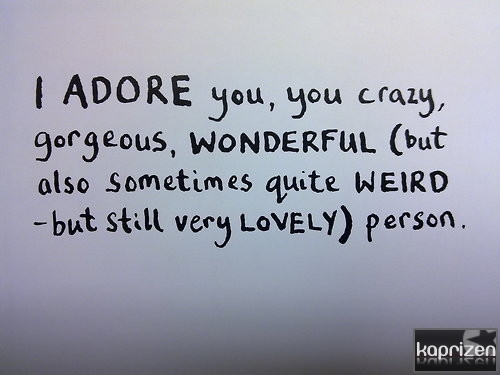 I ADORE you, you crazy,
gorgeous, WONDERFUL (but
also sometimes quite WEIRD
-but still very LOVELY) person.
kaprizen